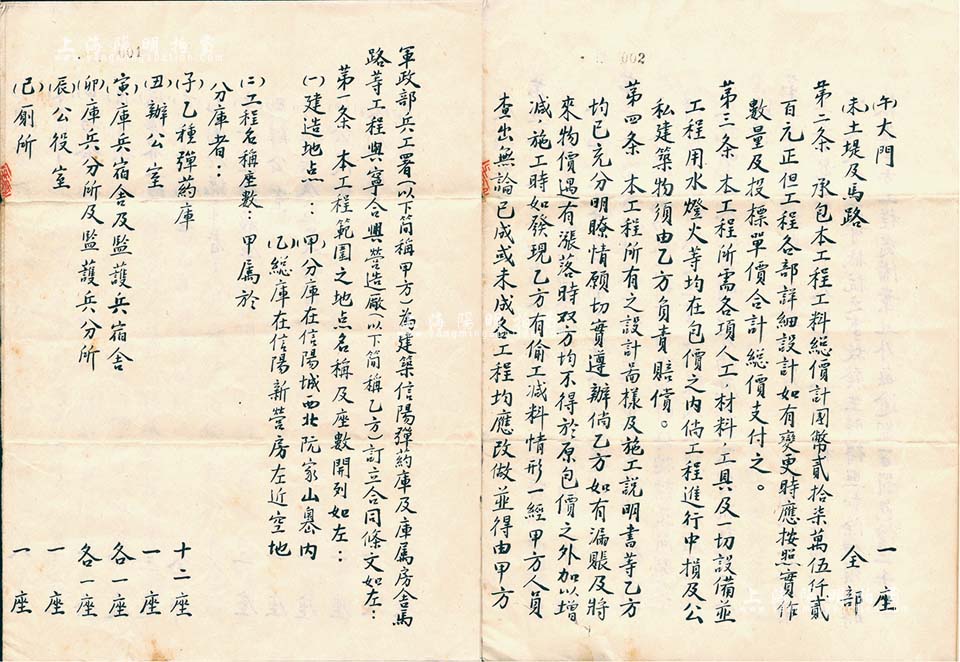 001
軍政部兵工署(以下簡稱甲方)為建築信陽彈葯庫及庫属房舍馬
路等工程與寧合興營造廠(以下簡稱乙方)訂立合同條文如左:
第一条 本工程範圍之地点名稱及座數開列如左:
(一)建造地点:(甲)分庫在信陽城西北阮家山㙱内
(乙)総庫在信陽新營房左近空地
(二)工程名稱座數:甲属於
分庫者:
(子)乙種彈葯庫 十二座
(丑)辦公室 一座
(寅)庫兵宿舍及監護兵宿舍 各一座
(卯)庫兵分所及監護兵分所 各一座
(辰)公役室 一座
(巳)厠所 一座
002
(午)大門 一座
(未)土堤及馬路 全部
第二条 承包本工程工料総價計國幣貳拾柒萬伍仟貳
百元正但工程各部詳細設計如有變更時應按照實作
數量及投標單價合計総價支付之。
第三条 本工程所需各項人工材料工具及一切設備並
工程用水燈火等均在包價之内倘工程進行中損及公
私建築物須由乙方負責賠償。
第四条 本工程所有之設計啚樣及施工説明書等乙方
均已充分明瞭情願切實遵辦倘乙方如有漏賬及將
來物價遇有漲落時双方均不得於原包價之外加以增
減施工時如發現乙方有偷工减料情形一經甲方人員
查出無論已成或未成各工程均應改做並得由甲方
上海陽明拍賣